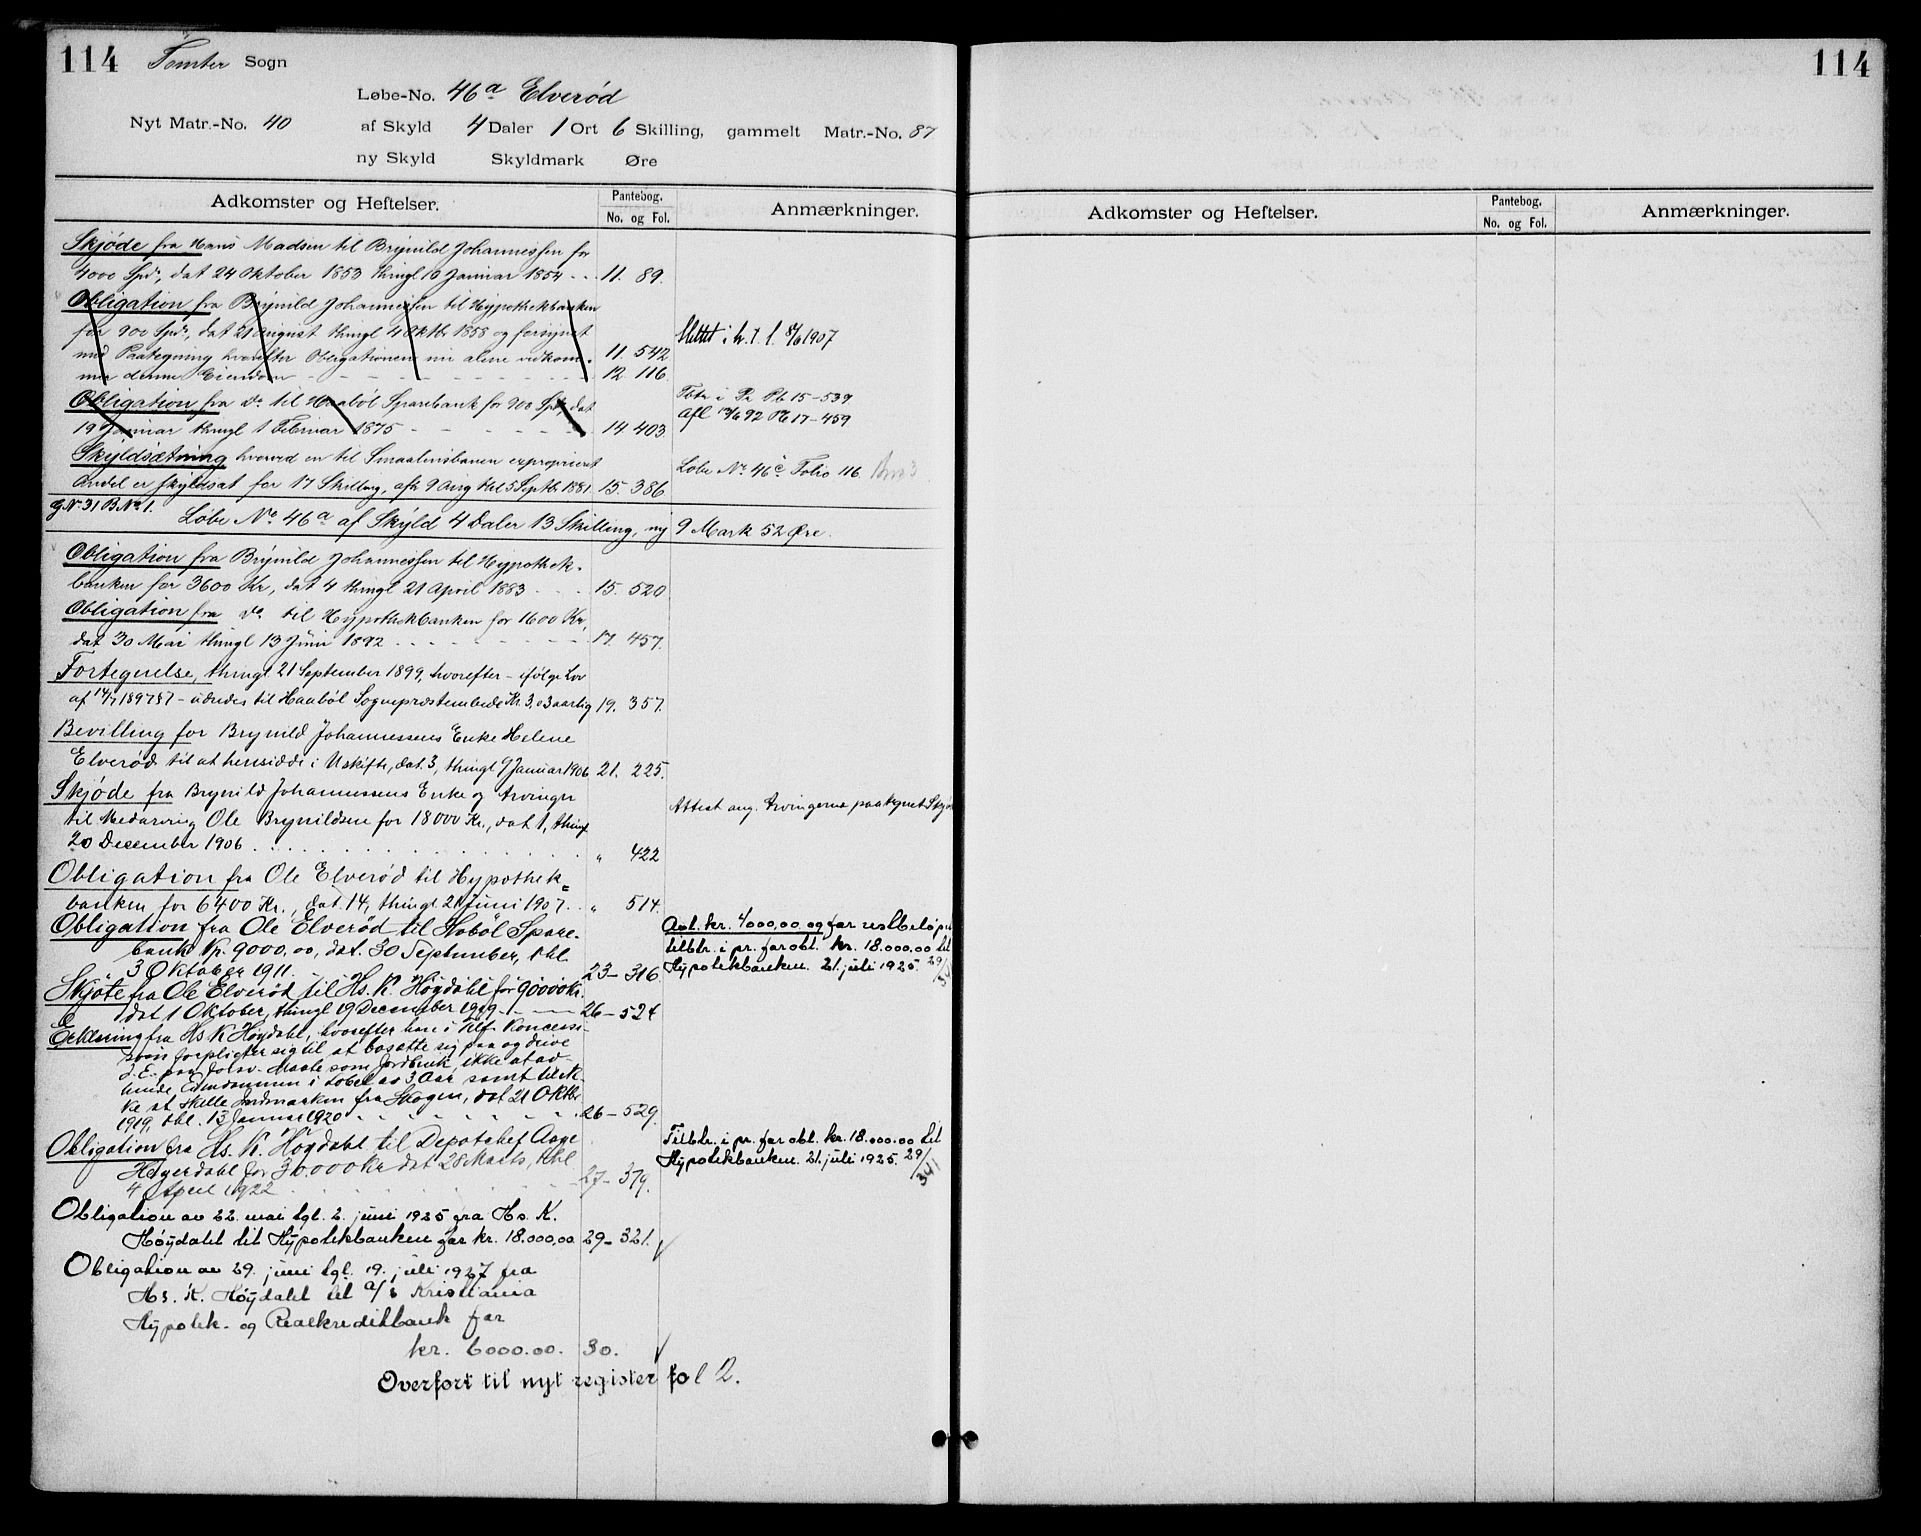 114 Tomter Sogn
114
Løbe-No. 46a Elverød
Nyt Matr.-No. 40 af Skyld 4 Daler 1 Ort 6 Skilling, gammelt Matr.-No. 87
ny Skyld Skyldmark Øre
Adkomster og Heftelser. Pantebog. No. og Fol. Anmærkninger.
Adkomster og Heftelser. Pantebog. No. og Fol. Anmærkninger.
Skjøde fra Hans Madsen til Brynild Johannessen for
4000 Spd, dat 24 Oktober 1853 thingl 10 Januar 1854 - - 11. 89.
Obligation fra Brynild Johannessen til Hypothekbanken
for 900 Spd, dat 21 August thingl 4 Oktbr 1858 og forsynet
Slettet i h. t. l. 8/6 1907
med Paategning hvorefter Obligationen nu alene vedkom- 11. 542
mer denne Eiendom - - - 12. 116.
Obligation fra Do til Haabøl Sparebank for 900 Spd dat
Tbtr i Pr Pb 15-539
19 Januar thingl 1 Februar 1875 - - - 14. 403.
Afl 13/6 92 Pb 17-459
Skyldsætning hvorved en til Smaalensbanen exproprieret
Andel er skyldsat for 17 Skilling, afh 9 Aug thl 5 Septbr 1881. 15. 386
Løbe No 46c Folio 116.
G.No 31 B.No 1.
Løbe No 46a af Skyld 4 Daler 13 Skilling, ny 9 Mark 52 Øre.
Obligation fra Brynild Johannessen til Hypothek-
banken for 3600 Kr, dat 4 thingl 21 April 1883 - - - 15. 520
Obligation fra Do til Hypothekbanken for 1600 Kr,
dat 30 Mai thingl 13 Juni 1892 - - - 17. 457.
Fortegnelse, thingl 21 September 1899, hvorefter - ifølge Lov
af 14/7 1897 § 7 - udredes til Haabøl Sogneprestembede Kr. 3,03 aarlig 19. 357.
Bevilling for Brynild Johannessens Enke Helene
Elverød til at hensidde i Uskifte, dat. 3, thingl 9 Januar 1906 21. 225.
Skjøde fra Brynild Johannessens Enke og Arvinger
Attest ang. Arvingerne paategnet Skjø
til Medarving Ole Brynildsen for 18000 Kr., dat 1, thingl
20 December 1906 . . . " 422
Obligation fra Ole Elverød til Hypothek-
banken for 6400 Kr., dat. 14, thingl 21 Juni 1907 . . " 514.
Obligation fra Ole Elverød til Hobøl Spare-
bank Kr. 9000,00, dat. 30 September, thl.
3 Oktober 1911. 23- 316.
Avl. kr. 4000,00 og for restbeløpet
tilbtr. i pr. for obl. kr. 18.000.00 til
Hypotekbanken. 21. juli 1925. 29/341
Skjøte fra Ole Elverød til Hs. K. Høydahl for 90000 Kr.
dat 1 Oktober, thingl 19 December 1919 - - - 26-524
Erklæring fra Hs K Høydahl, hvorefter han i Flg. Koncessi-
sjon forpligter sig til at bosætte sig paa og drive
d. E. paa forsv. Maate som Jordbruk, ikke at av-
hende Eiendommen i Løbet av 3 Aar samt til ik-
ke at skille Indmarken fra Skogen, dat 21 Oktbr
1919, thl. 13 Januar 1920 - - - 26-529.
Obligation fra Hs. K. Høydahl til Depotchef Aage
Høyerdahl for 30.000 Kr. dat 28 Marts, thl
4 April 1922 . . . 27-379.
Tilbtr. i pr. for obl. kr. 18.000.00 til
Hypotekbanken. 21. juli 1925. 29/341
Obligation av 22. mai tgl. 2. juni 1925 fra Hs. K.
Høydahl til Hypotekbanken for kr. 18.000,00 29- 321.
Obligation av 29. juni tgl. 19. juli 1927 fra
Hs. K. Høydahl til A/s Kristiania
Hypotek- og Realkreditbank for
kr. 6000.00. 30.
Overført til nyt register fol 2.